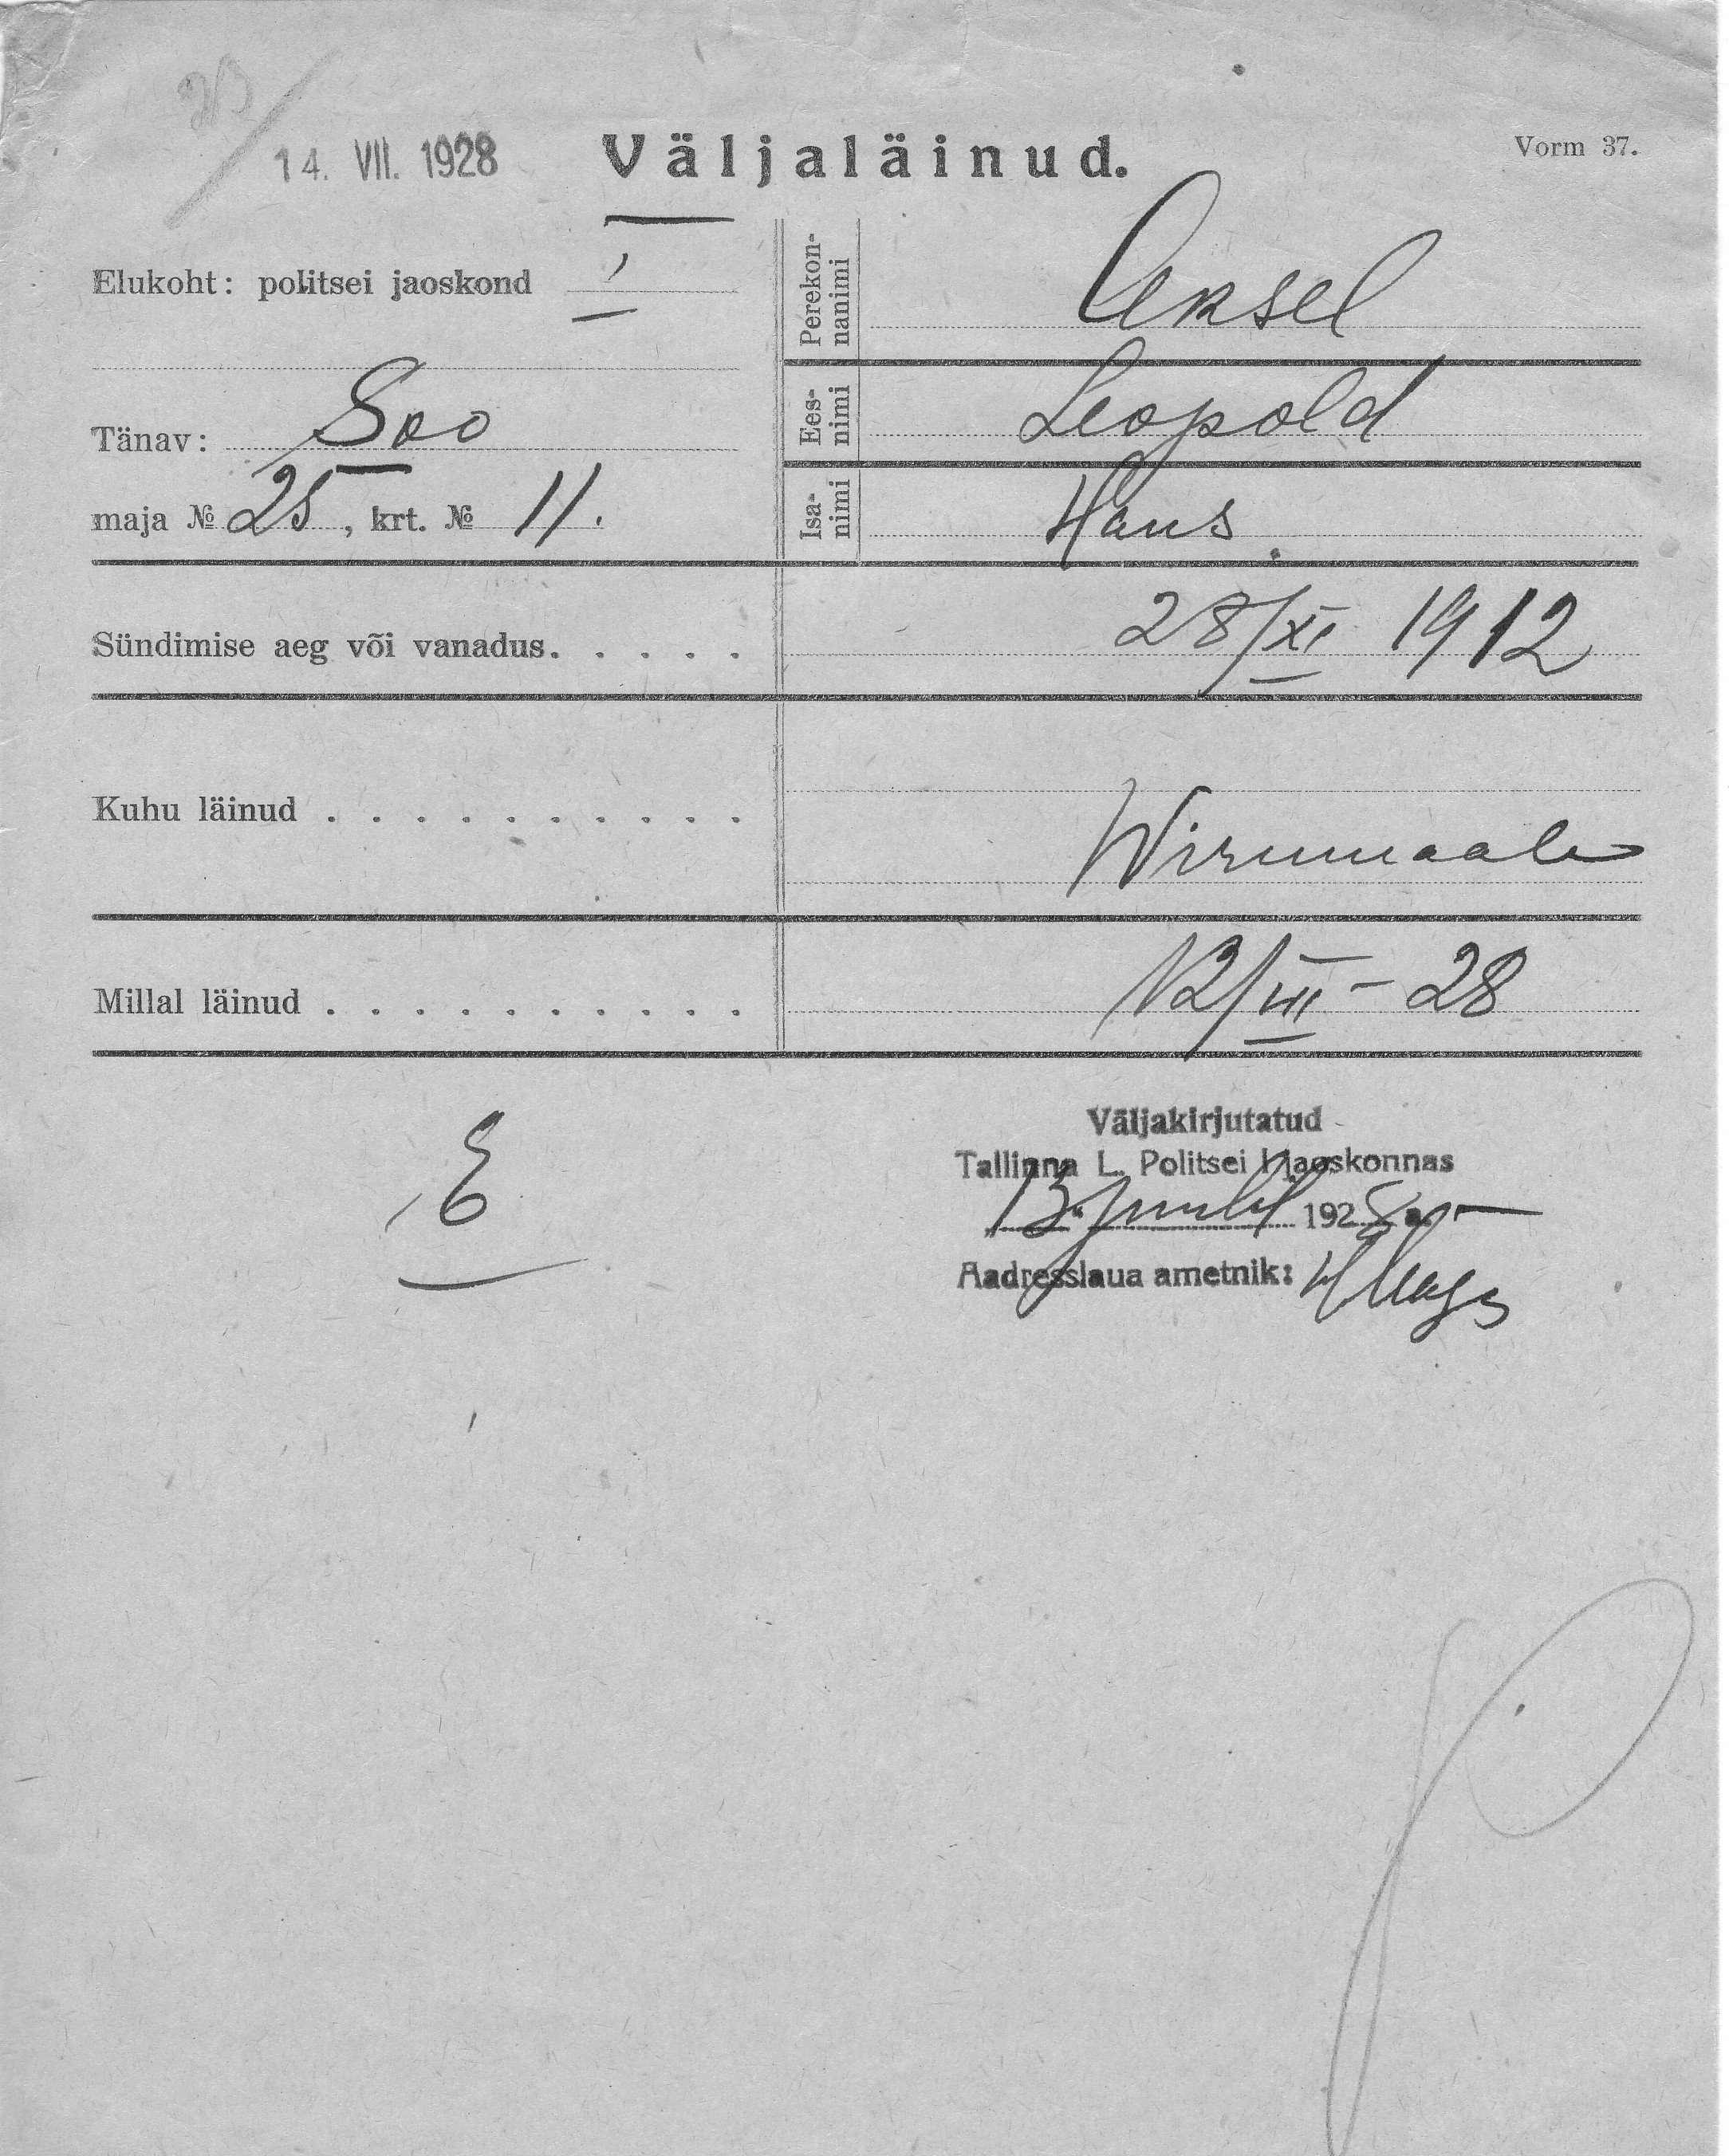 14. VII. 1928
Väljaläinud.
Vorm 37.
Elukoht: politsei jaoskond I
Perekon-
nanimi
Aksel
Tänav: Soo
Ees-
nimi
Leopold
maja № 25, krt. № 11.
Isa-
nimi
Hans.
Sündimise aeg või vanadus. . . . . 28/XI 1912
Kuhu läinud . . . . . . . . . . Wirumaale
Millal läinud . . . . . . . . . . 12/VII - 28
E
Väljakirjutatud
Tallinna L. Politsei I jaoskonnas
13. juulil 1928 a.
Aadresslaua ametnik: